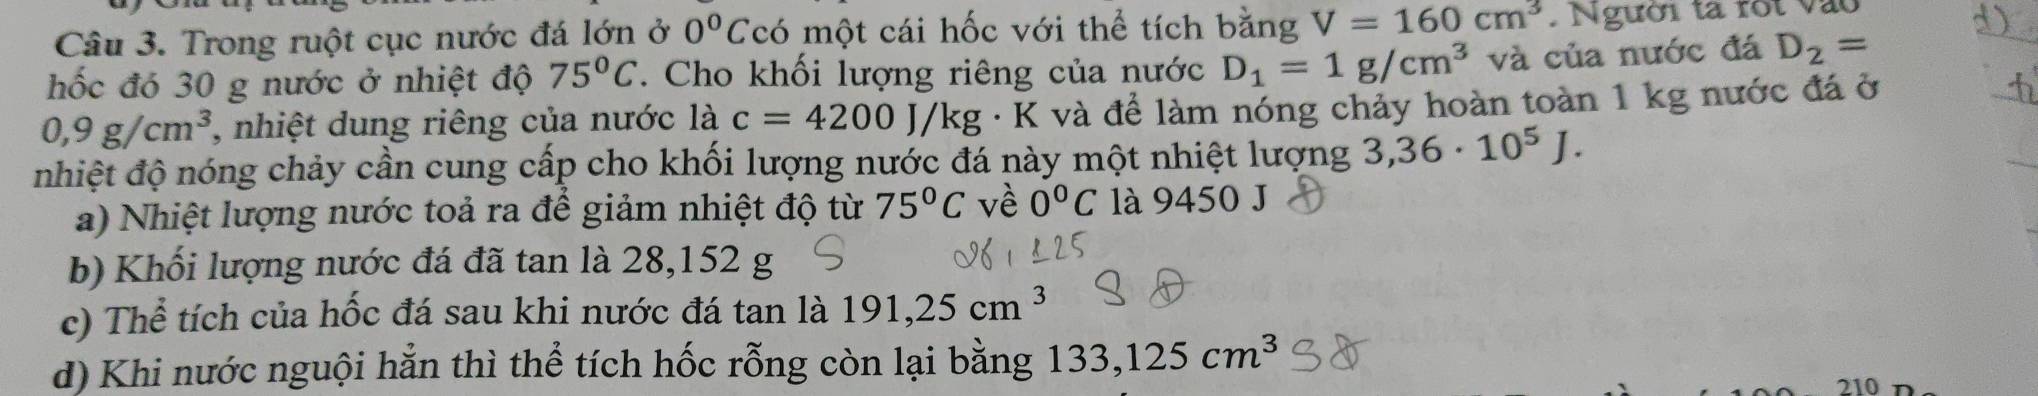 Câu 3. Trong ruột cục nước đá lớn ở 0⁰Ccó một cái hốc với thể tích bằng V = 160 cm³. Người ta rót vào
hốc đó 30 g nước ở nhiệt độ 75⁰C. Cho khối lượng riêng của nước D₁ = 1 g/cm³ và của nước đá D₂ =
0,9 g/cm³, nhiệt dung riêng của nước là c = 4200 J/kg · K và để làm nóng chảy hoàn toàn 1 kg nước đá ở
nhiệt độ nóng chảy cần cung cấp cho khối lượng nước đá này một nhiệt lượng 3,36 · 10⁵ J.
a) Nhiệt lượng nước toả ra để giảm nhiệt độ từ 75⁰C về 0⁰C là 9450 J Đ
b) Khối lượng nước đá đã tan là 28,152 g S 28,125
c) Thể tích của hốc đá sau khi nước đá tan là 191,25 cm ³ S Đ
d) Khi nước nguội hẳn thì thể tích hốc rỗng còn lại bằng 133,125 cm³ S Đ
210